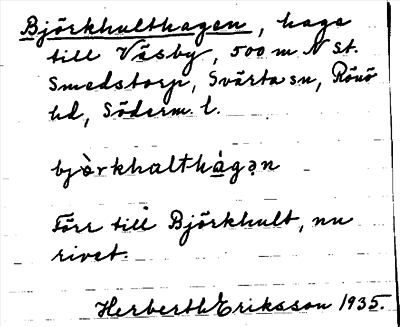 Björkhulthagen, hage
till Väsby, 500 m N st.
Smedstorp, Svärta sn, Rönö
hd, Söderm. l.
bjò̀rkhalthá̱gǝn
Förr till Björkhult, nu
rivet.
Herberth Eriksson 1935.